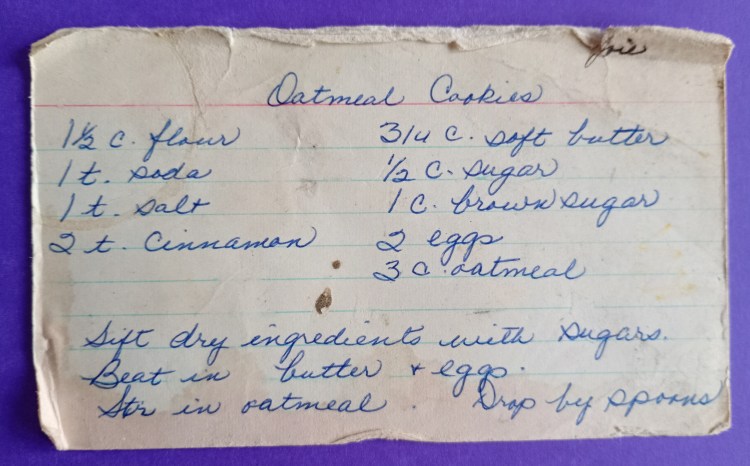 Oatmeal Cookies
1 1/2 c. flour
1 t. soda
1 t. salt
2 t. cinnamon
3/4 c. soft butter
1/2 c. sugar
1 c. brown sugar
2 eggs
3 c. oatmeal
Sift dry ingredients with sugars.
Beat in butter + eggs.
Stir in oatmeal. Drop by spoons